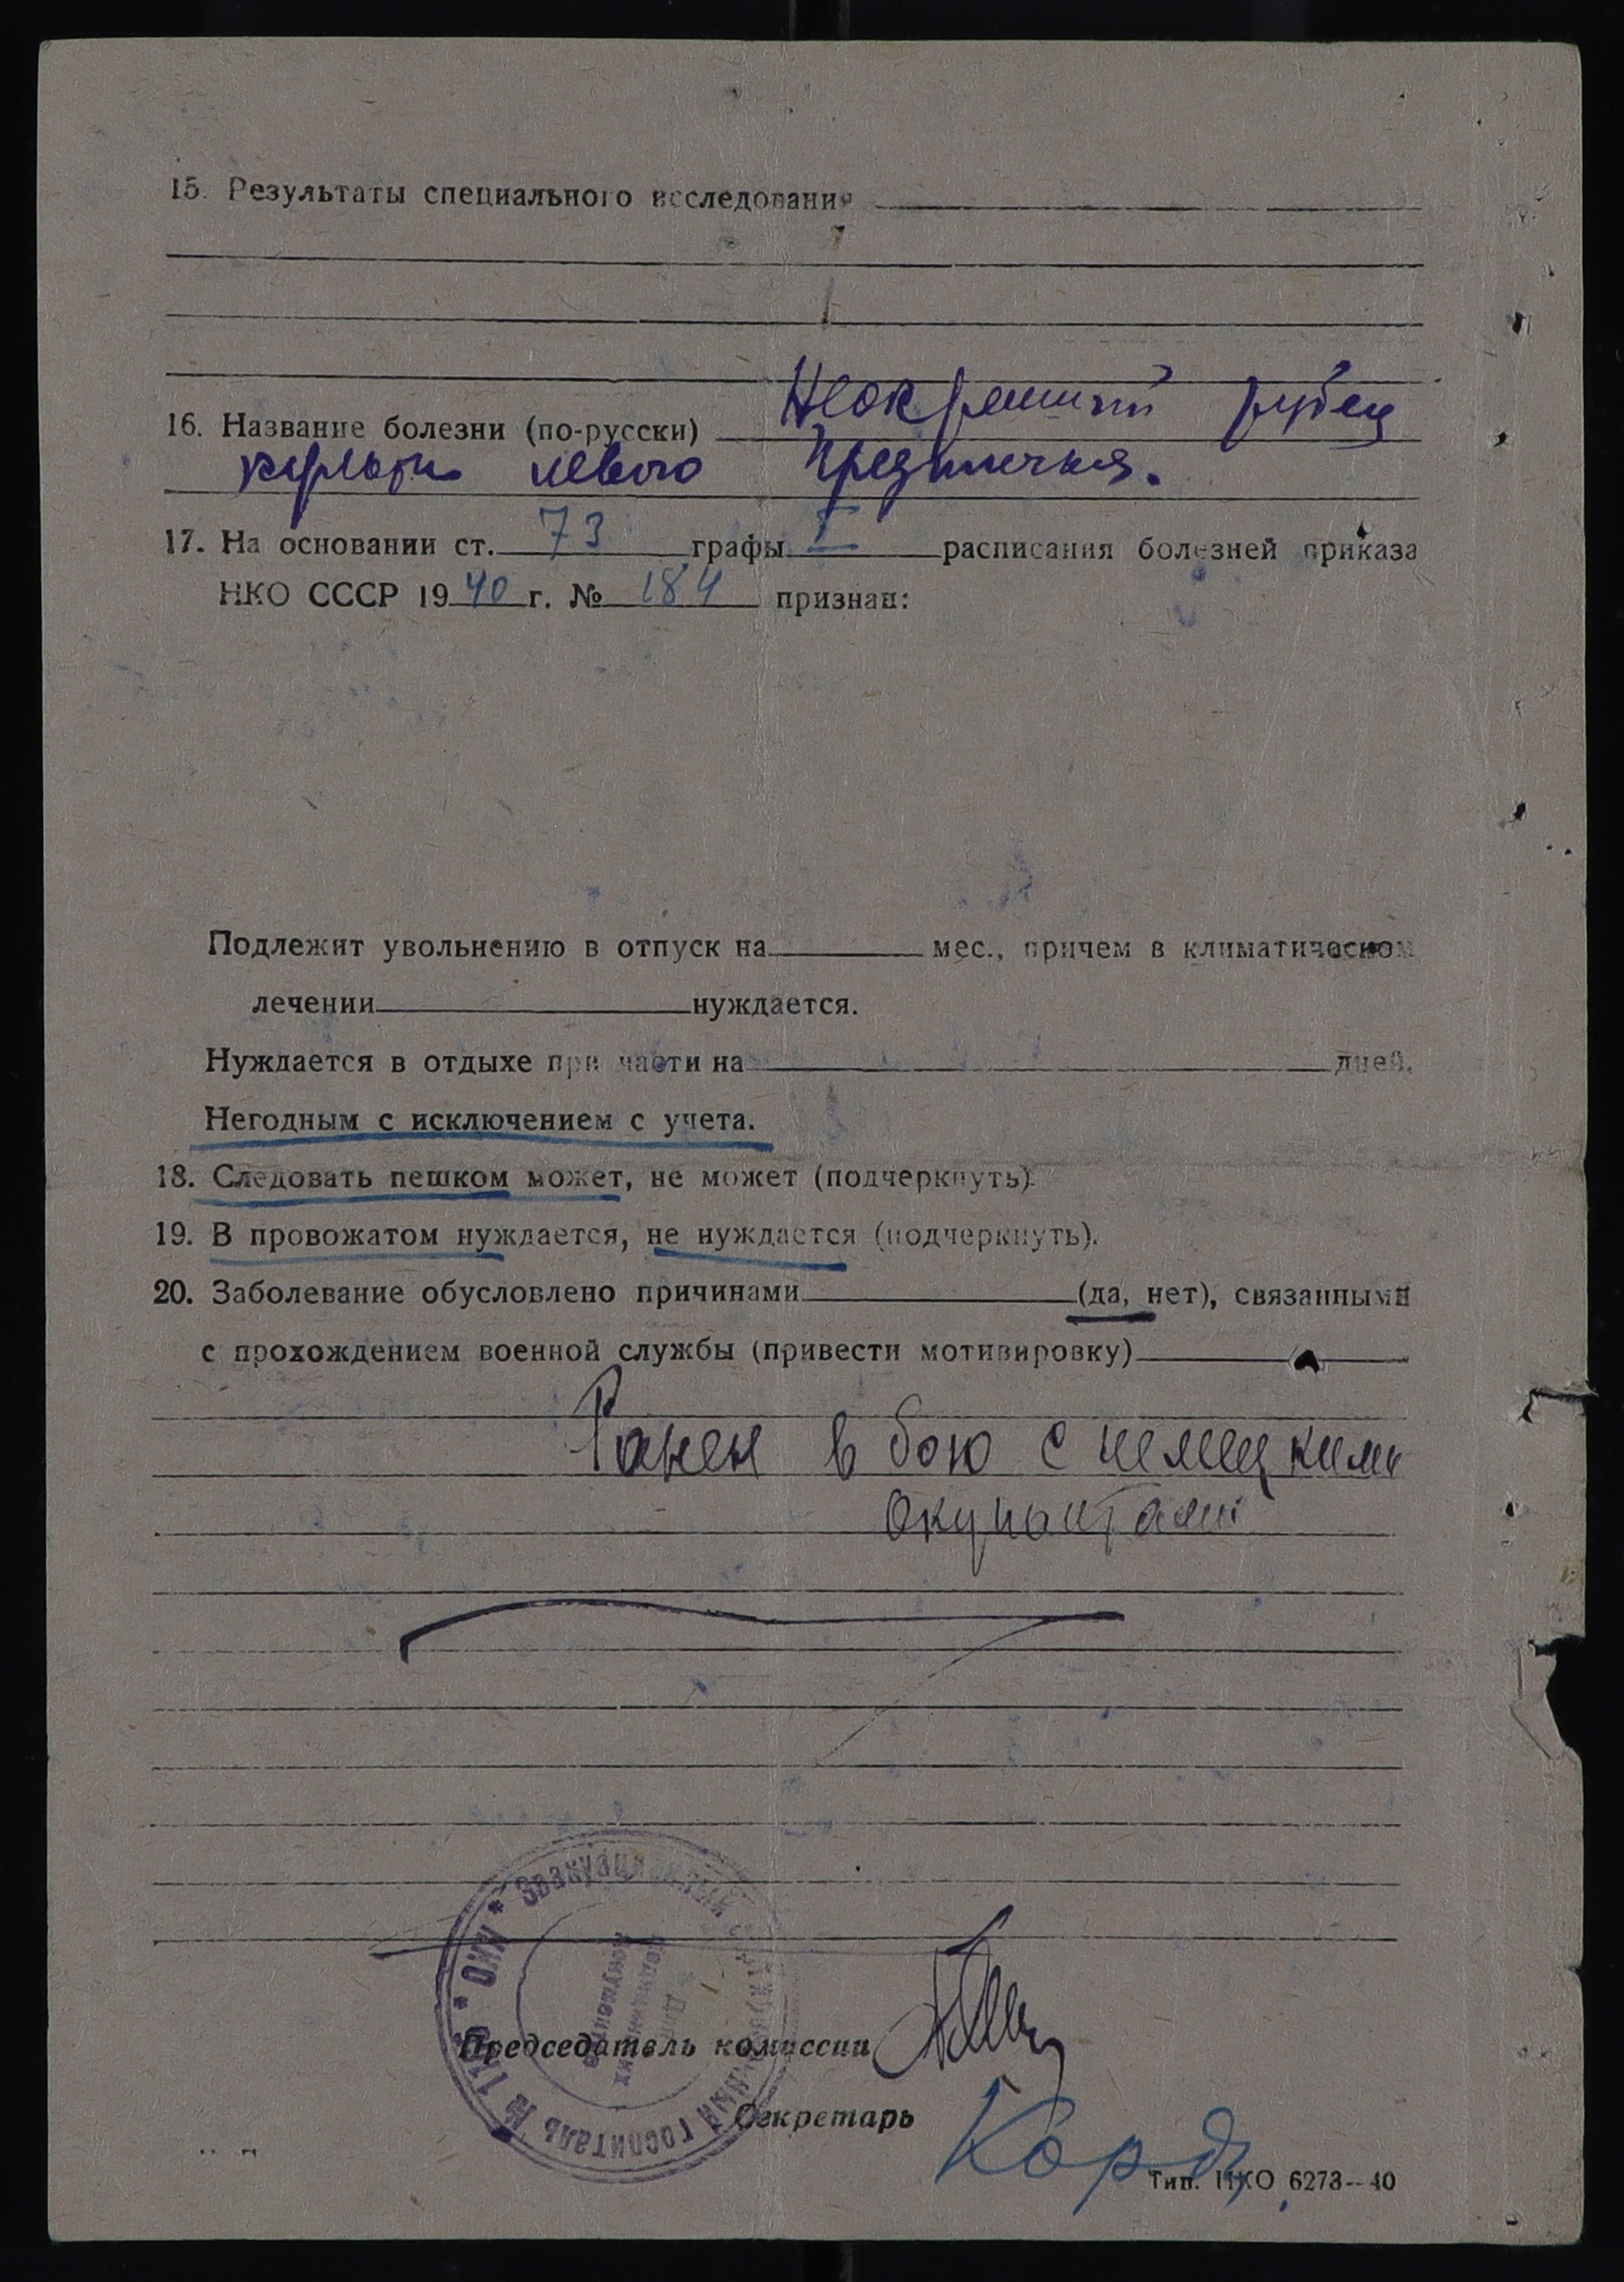 15. Результаты специального исследования
16. Название болезни (по-русски) Неокрепший рубец
культи левого предплечья.
17. На основании ст. 73 графы I расписания болезней приказа
НКО СССР 1940 г. № 184 признан:
Подлежит увольнению в отпуск на мес., причем в климатическом
лечении нуждается.
Нуждается в отдыхе при части на дней.
Негодным с исключением с учета.
18. Следовать пешком может, не может (подчеркнуть).
19. В провожатом нуждается, не нуждается (подчеркнуть).
20. Заболевание обусловлено причинами (да, нет), связанными
с прохождением военной службы (привести мотивировку)
Ранен в бою с немецкими
окупантами
НКО * Эвакуационный
госпиталь №
Председатель комиссии
Секретарь
Тип. НКО 6273—40